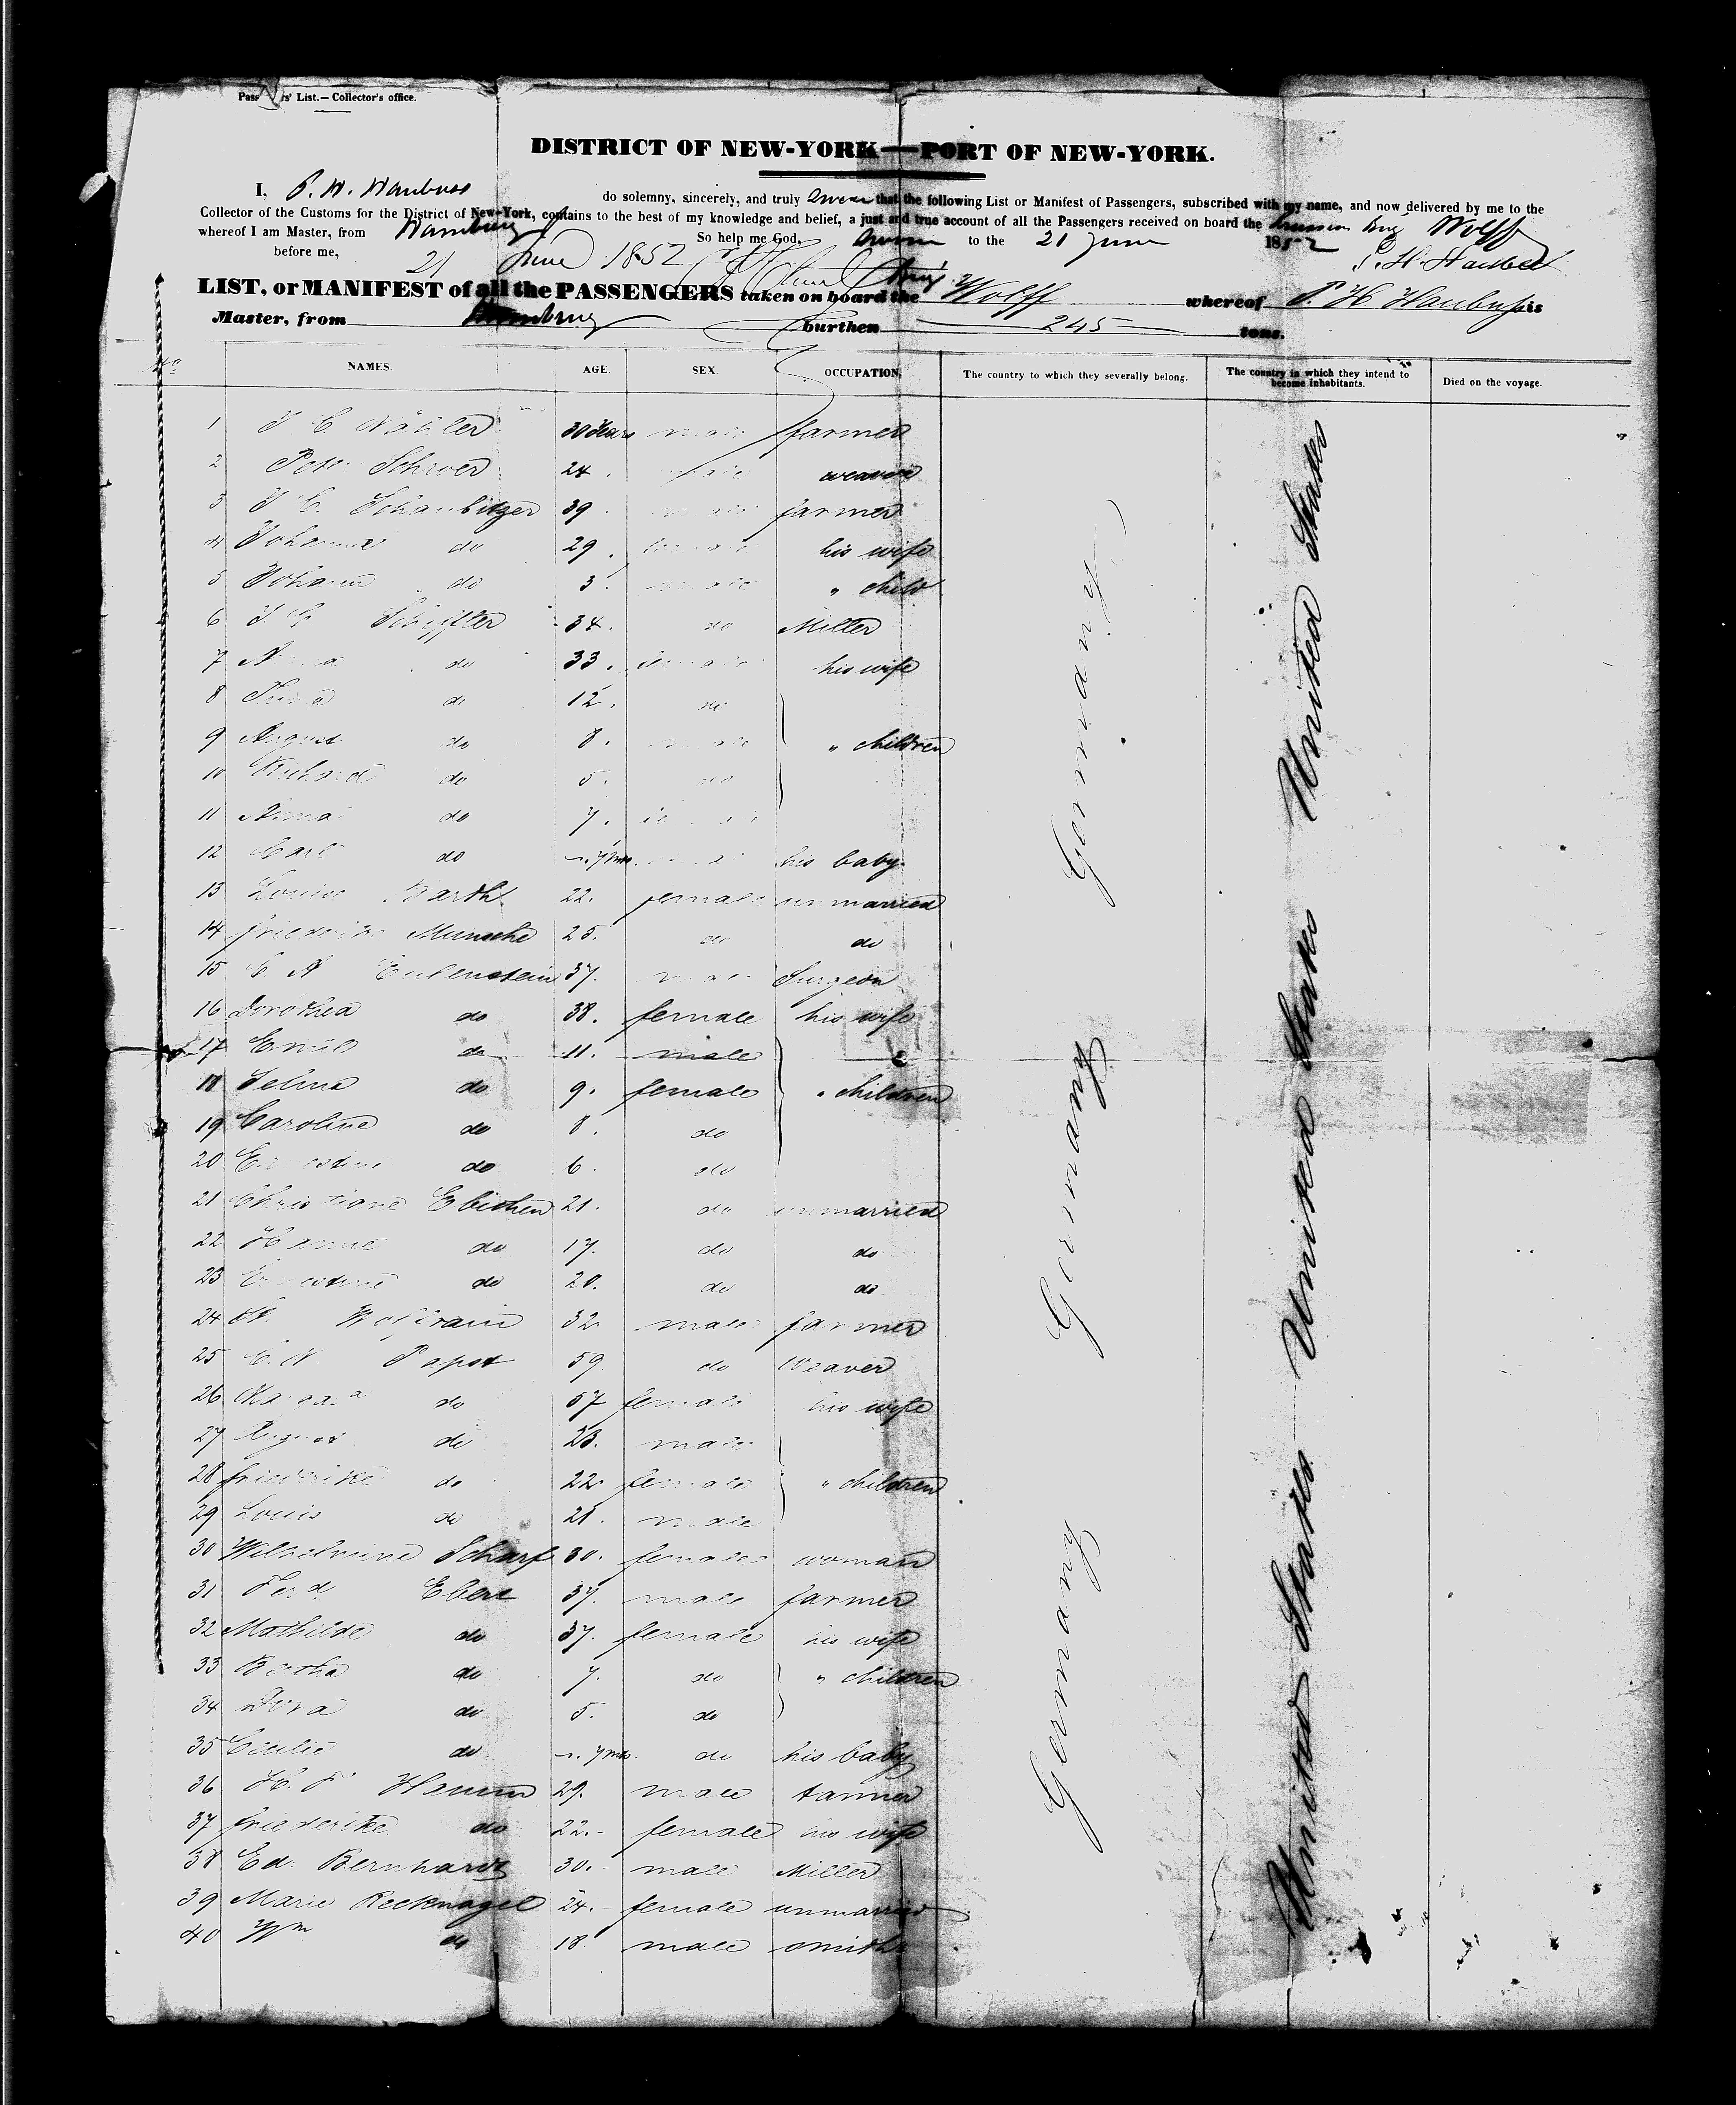 Passengers' List.—Collector's office.
DISTRICT OF NEW-YORK—PORT OF NEW-YORK.
I, P. H. Haubuss do solemny, sincerely, and truly swear that the following List or Manifest of Passengers, subscribed with my name, and now delivered by me to the
Collector of the Customs for the District of New-York, contains to the best of my knowledge and belief, a just and true account of all the Passengers received on board the Prussian brig Wolff
whereof I am Master, from Hamburg So help me God. sworn to the 21 June 1852
before me, 21 June 1852 P. H.
LIST, or MANIFEST of all the PASSENGERS taken on board the brig Wolff whereof P. H. is
Master, from Hamburg burthen 245 tons.
No NAMES. AGE. SEX. OCCUPATION. The country to which they severally belong. The country in which they intend to become inhabitants. Died on the voyage.
1 30 Years male farmer
2 Peter Schroer 24. male weaver
3 Schaubitzer 39. male farmer
4 Johanna do 29. female his wife
5 Johann do 3. male " child
6 34. do Miller
7 do 33. female his wife
8 do 12. do
9 August do 8. male " children
10 Richard do 5. do
11 Anna do 7. female
12 Carl do 7 mos. male his baby
13 Louise Barth 22. female unmarried
14 friederike 25. do do
15 C A Eulenstein 37. male Surgeon
16 Dorothea do 38. female his wife
17 Emil do 11. male
18 Selma do 9. female " children
19 Caroline do 8. do
20 Ernestine do 6. do
21 Christiane 21. do unmarried
22 do 17. do do
23 Ernestine do 20. do do
24 Wolfram 32 male farmer
25 Papst 59 do Weaver
26 do 57 female his wife
27 August do 23. male
28 friederike do 22 female " children
29 Louis do 21. male
30 Wilhelmine Scharf 30. female woman
31 Ferd. Ebert 37. male farmer
32 Mathilde do 37. female his wife
33 Bertha do 7. do " children
34 Dora do 5. do
35 Cecilie do 7 mos. do his baby
36 29. male tanner
37 friederike do 22. female his wife
38 Ed. Bernhardt 30. male Miller
39 Marie Recknagel 24. female unmarried
40 Wm do 18 male smith
Germany
Germany
Germany
United States
United States
United States